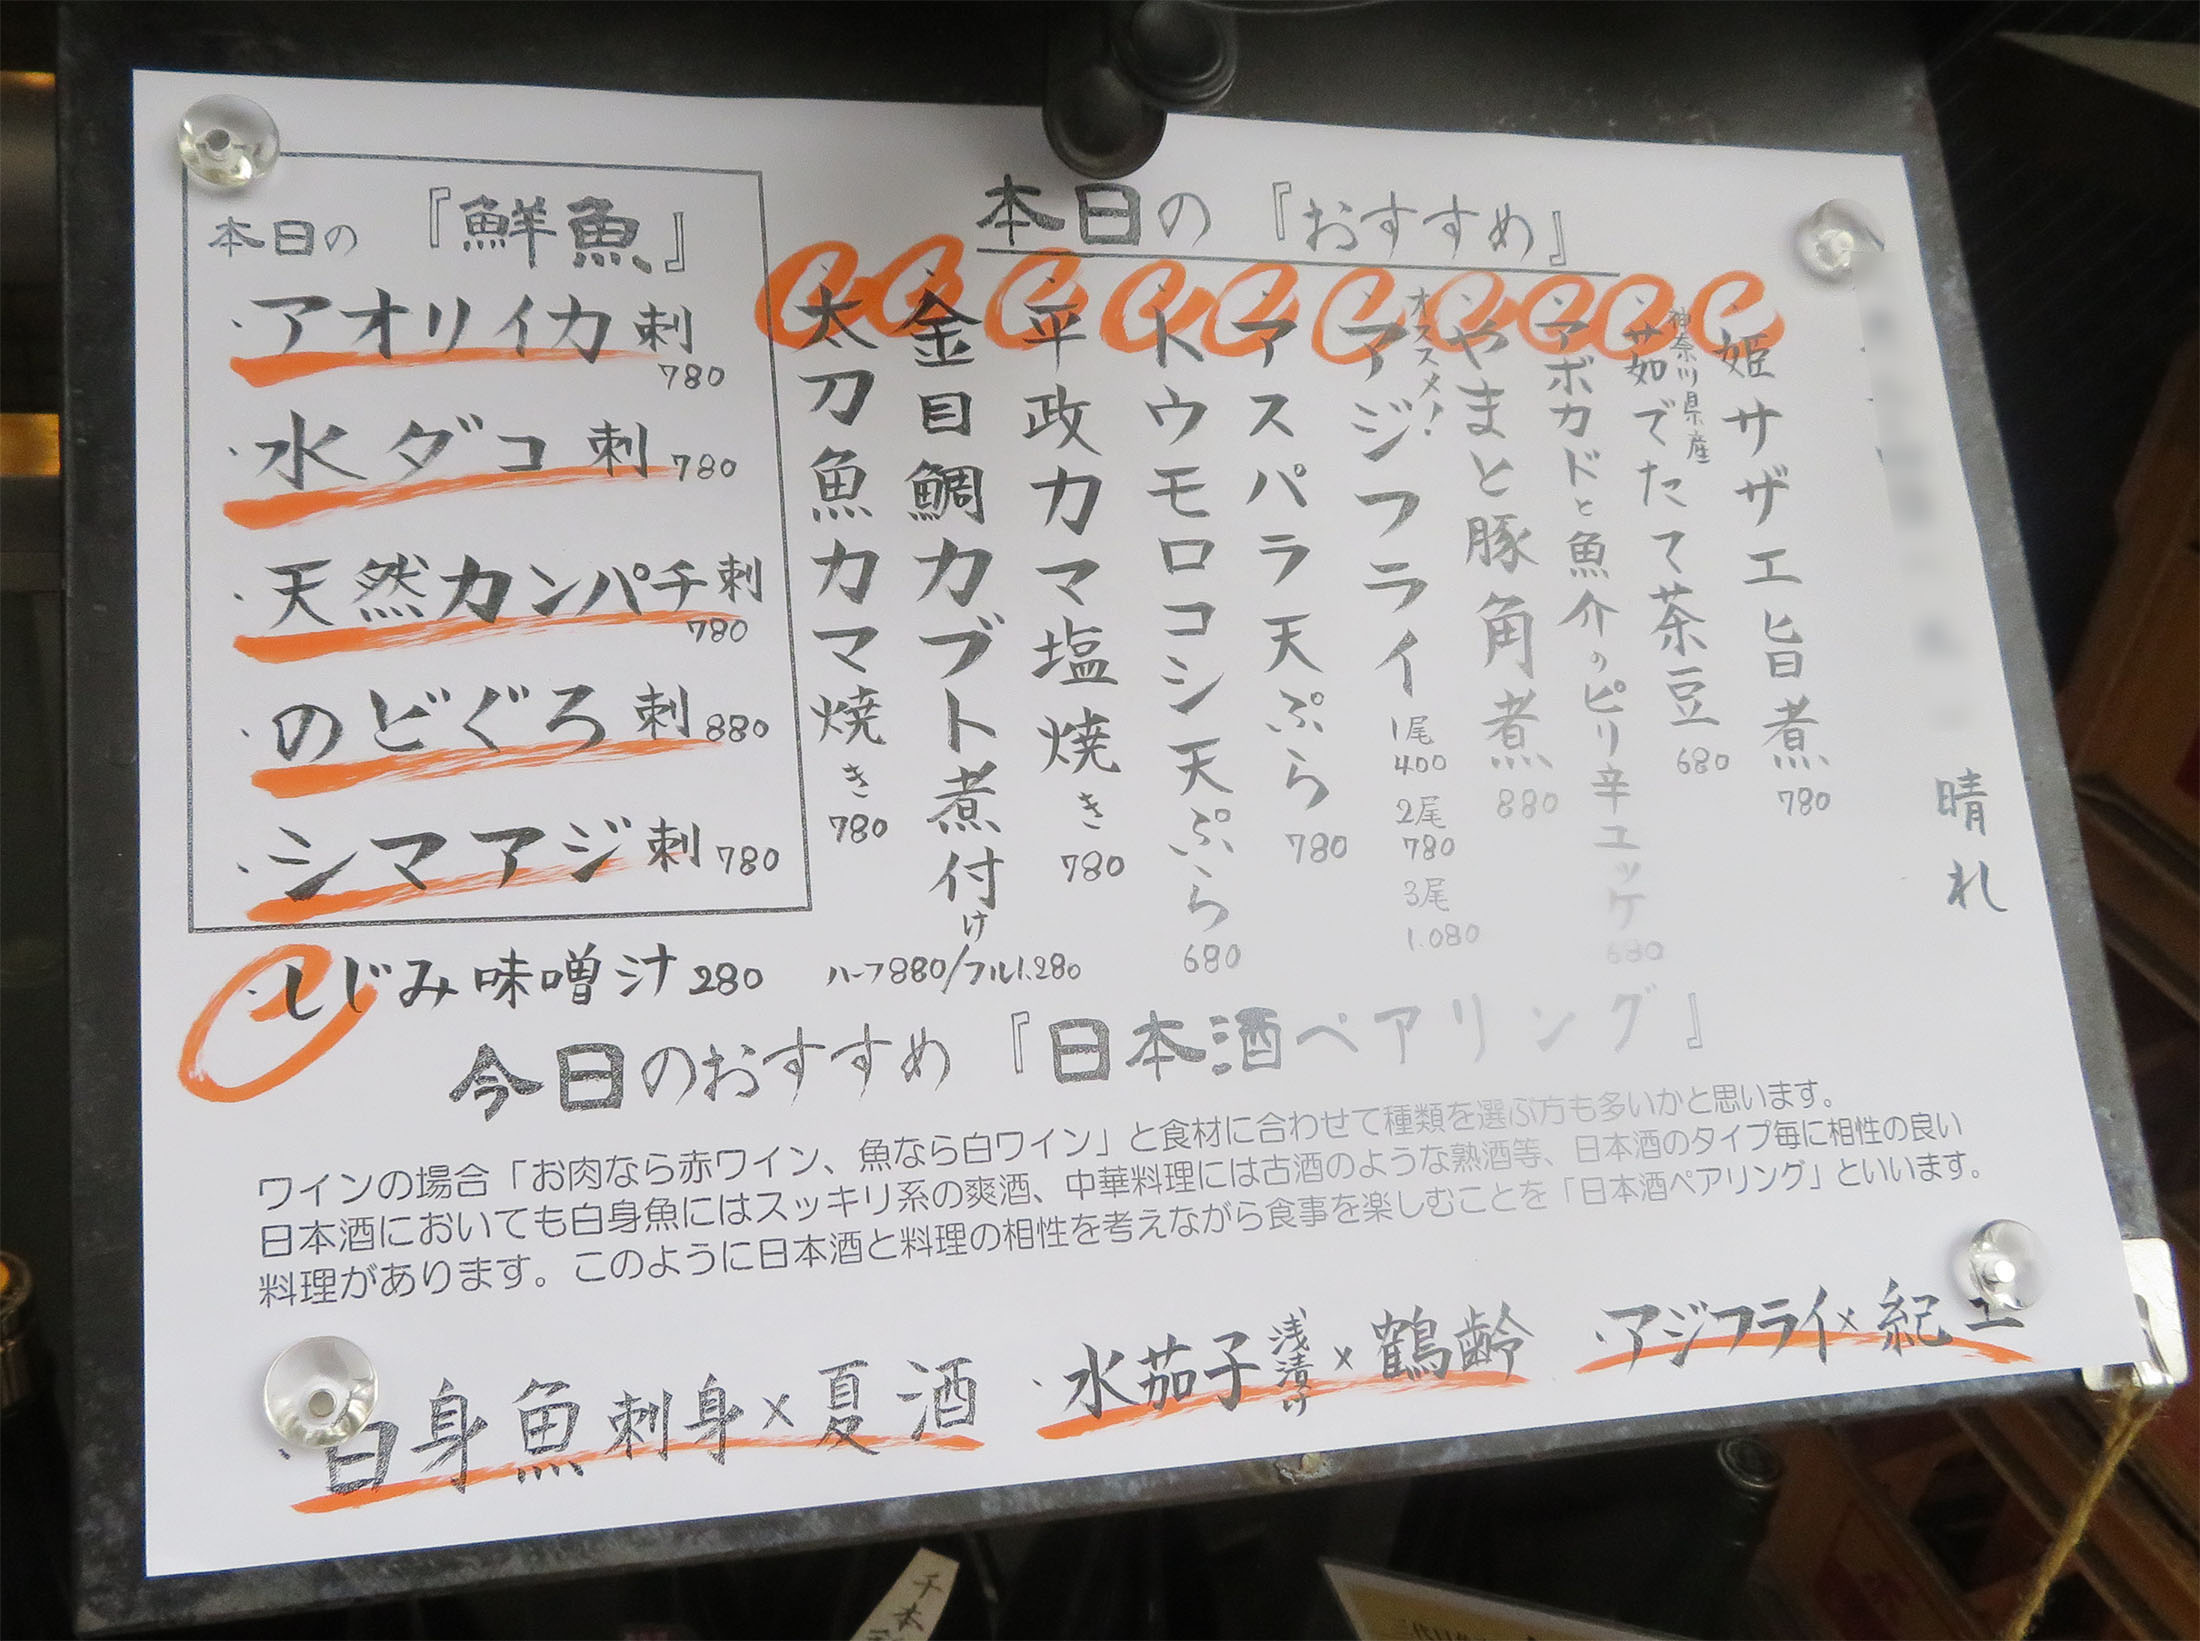 本日の『鮮魚』
・アオリイカ刺 780
・水ダコ刺 780
・天然カンパチ刺 780
・のどぐろ刺 880
・シマアジ刺 780
・しじみ味噌汁 280
本日の『おすすめ』
晴れ
・姫サザエ旨煮 780
・神奈川県産 茹でたて茶豆 680
・アボカドと魚介のピリ辛ユッケ 680
・やまと豚角煮 880
・オススメ! アジフライ 1尾 400 2尾 780 3尾 1.080
・アスパラ天ぷら 780
・トウモロコシ天ぷら 680
・平政カマ塩焼き 780
・金目鯛カブト煮付け ハーフ880/フル1.280
・太刀魚カマ焼き 780
今日のおすすめ『日本酒ペアリング』
ワインの場合「お肉なら赤ワイン、魚なら白ワイン」と食材に合わせて種類を選ぶ方も多いかと思います。
日本酒においても白身魚にはスッキリ系の爽酒、中華料理には古酒のような熟酒等、日本酒のタイプ毎に相性の良い
料理があります。このように日本酒と料理の相性を考えながら食事を楽しむことを「日本酒ペアリング」といいます。
・白身魚刺身×夏酒
・水茄子浅漬け×鶴齢
・アジフライ×紀土
千本